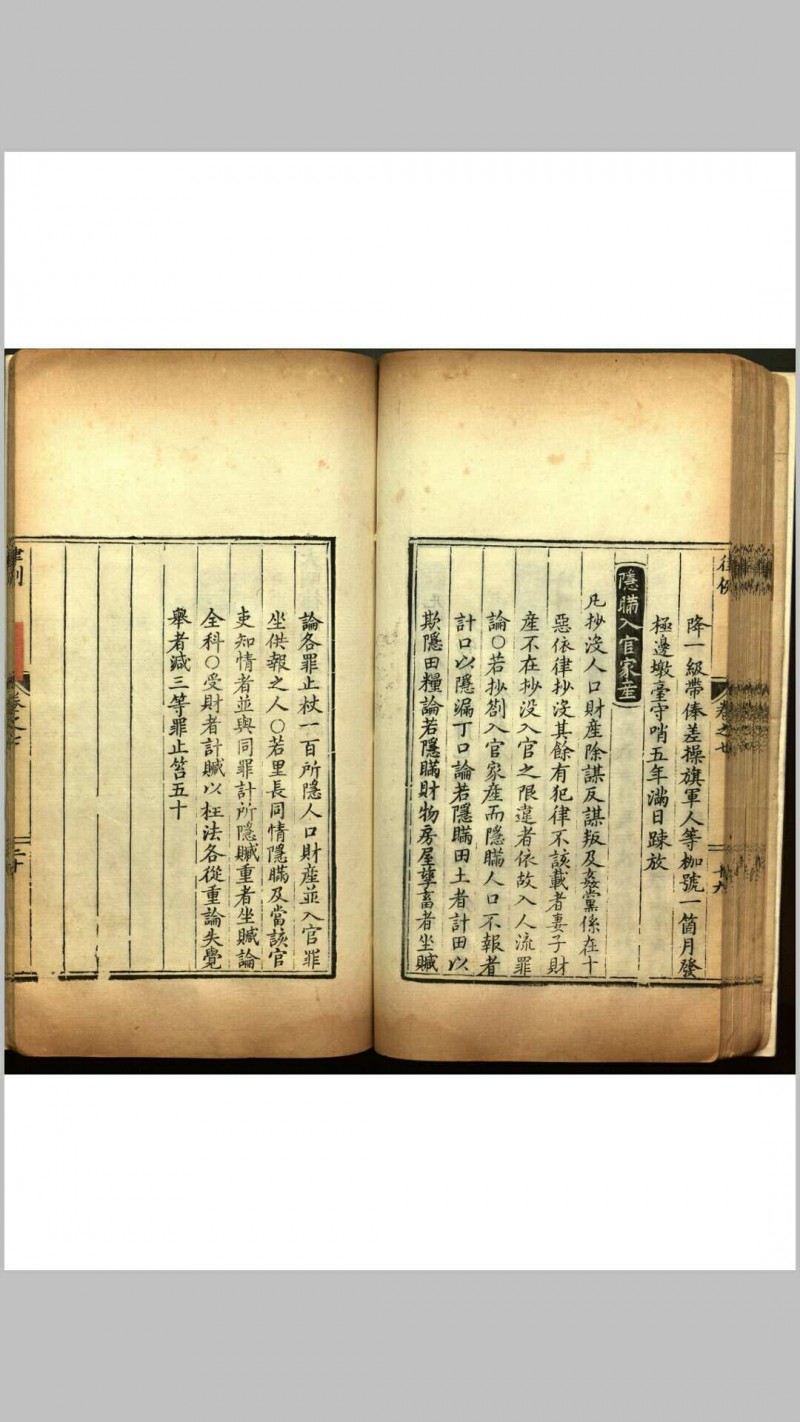 降一級帶俸差操旗軍人等枷號一箇月發
極邊墩臺守哨五年滿日踈放
隱瞞入官家産
凡抄沒人口財産除謀反謀叛及姦黨係在十
惡依律抄沒其餘有犯律不該載者妻子財
産不在抄沒入官之限違者依故入人流罪
論○若抄劄入官家産而隱瞞人口不報者
計口以隱漏丁口論若隱瞞田土者計田以
欺隱田糧論若隱瞞財物房屋孳畜者坐贓
論各罪止杖一百所隱人口財産並入官罪
坐供報之人○若里長同情隱瞞及當該官
吏知情者並與同罪計所隱贓重者坐贓論
全科○受財者計贓以枉法各從重論失覺
舉者減三等罪止笞五十